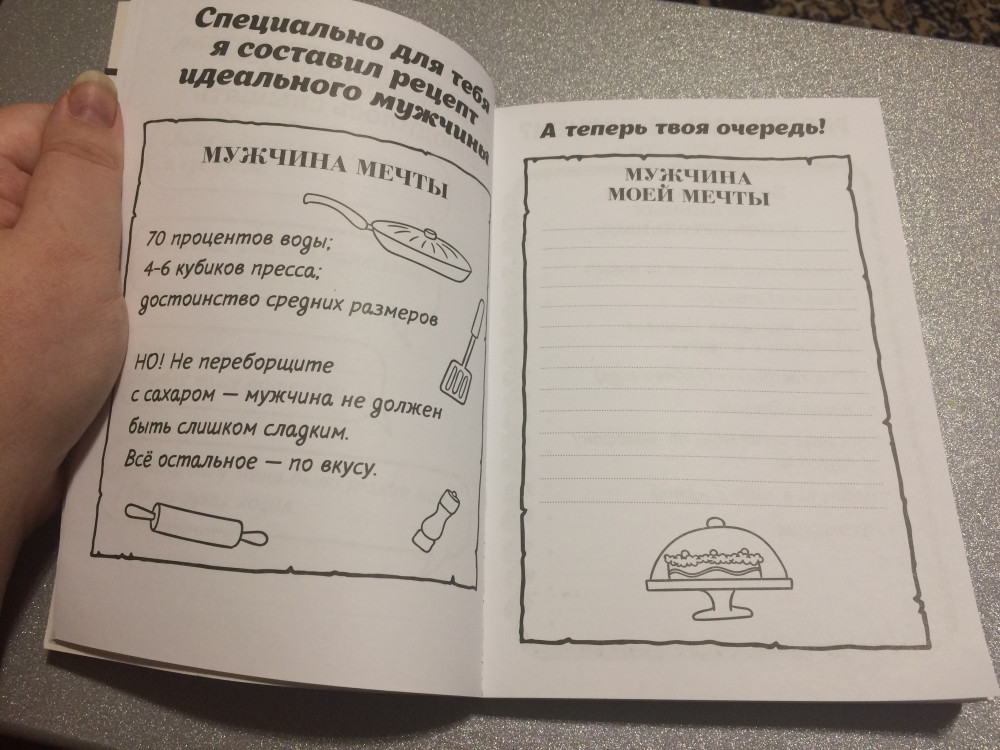 Специально для тебя
я составил рецепт
идеального мужчины
МУЖЧИНА МЕЧТЫ
70 процентов воды;
4-6 кубиков пресса;
достоинство средних размеров
НО! Не переборщите
с сахаром — мужчина не должен
быть слишком сладким.
Всё остальное — по вкусу.
А теперь твоя очередь!
МУЖЧИНА
МОЕЙ МЕЧТЫ